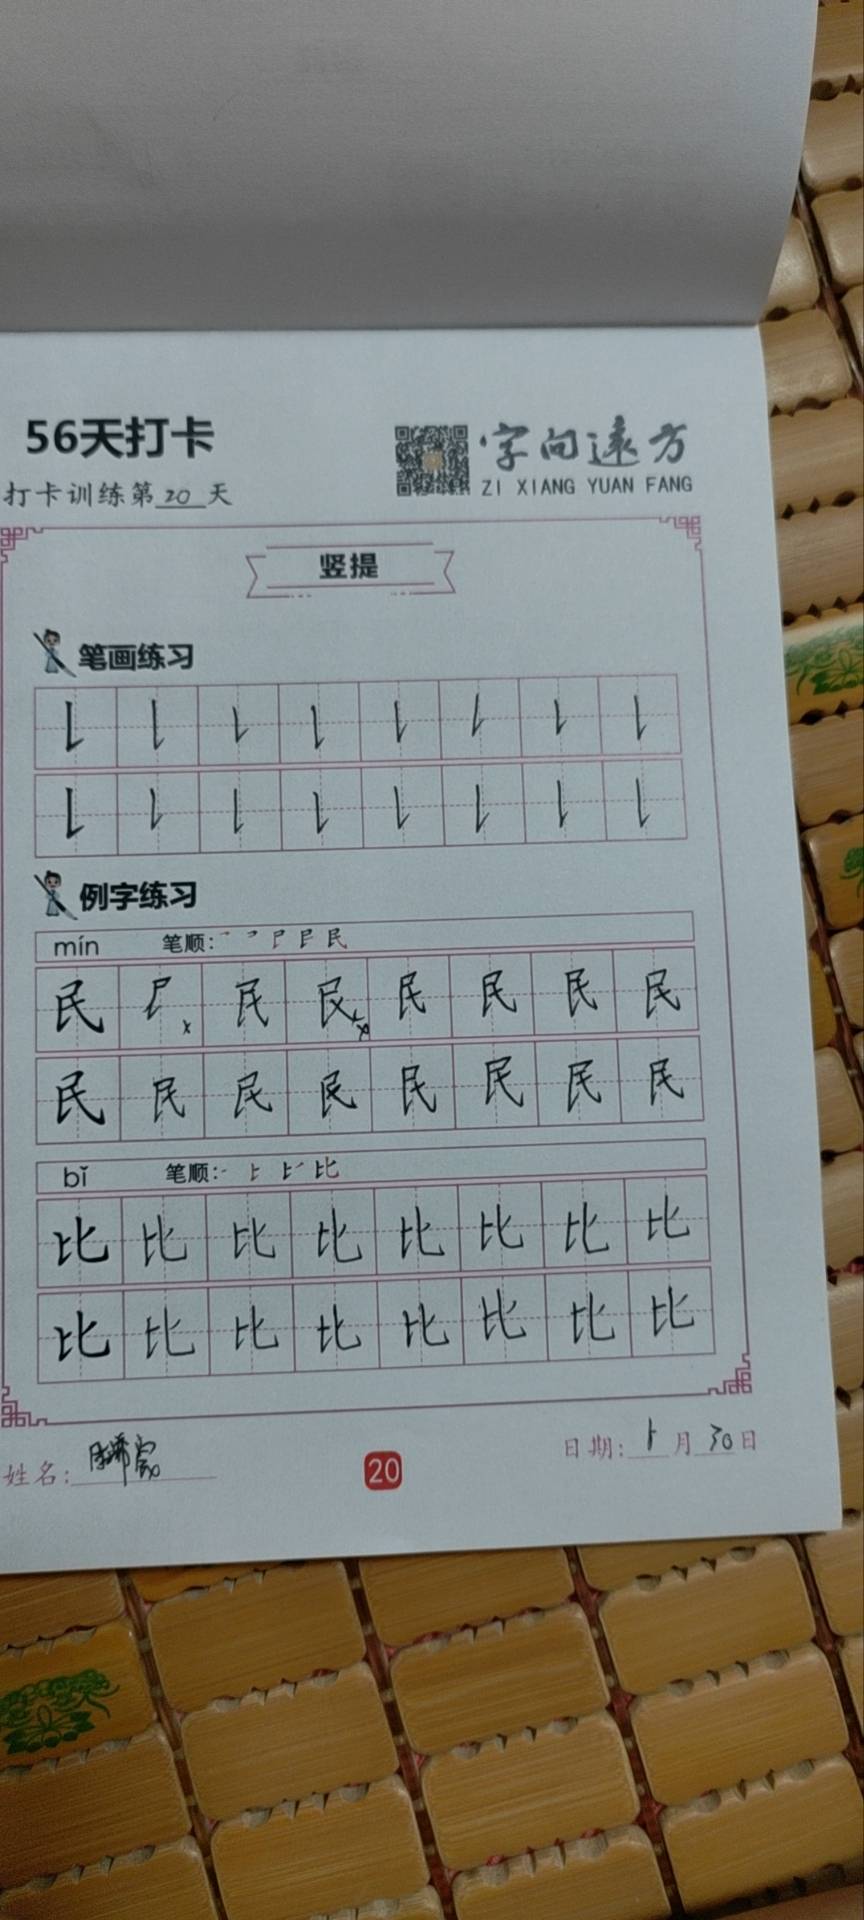 56天打卡
字向远方
ZI XIANG YUAN FANG
打卡训练第20天
竖提
笔画练习
例字练习
mín 笔顺:
民 民 民 民 民 民 民
民 民 民 民 民 民 民 民
bǐ 笔顺: 比
比 比 比 比 比 比 比 比
比 比 比 比 比 比 比 比
姓名:
20
日期: 月 30 日